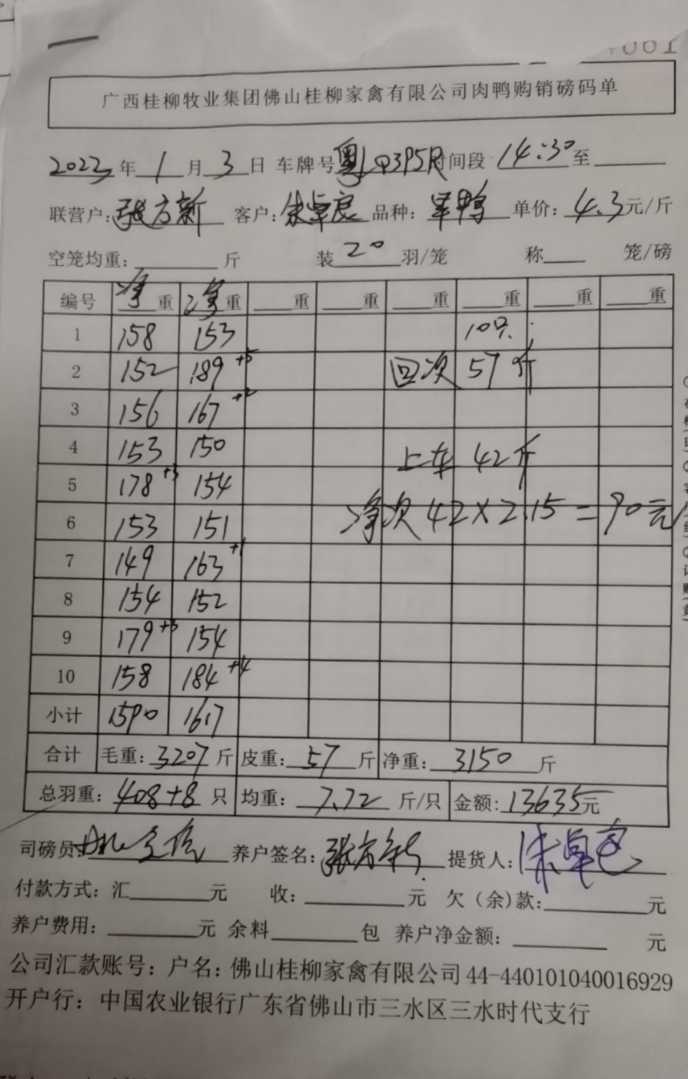 广西桂柳牧业集团佛山桂柳家禽有限公司肉鸭购销磅码单
2023年1月3日 车牌号 粤 时间段 14:30至
联营户:张方新 客户:朱卓良 品种: 单价:4.3元/斤
空笼均重: 斤 装20羽/笼 称 笼/磅
编号 净重 净重 重 重 重 重 重 重
1 158 153 10只
2 152 189+5 回次 57斤
3 156 167+2
4 153 150 上车 42斤
5 178+3 154
6 153 151 净次 42×2.15=90元
7 149 163+1
8 154 152
9 179+3 154
10 158 184+4
小计 1590 1617
合计 毛重:3207斤 皮重:57斤 净重:3150斤
总羽重:408+8只 均重:7.72斤/只 金额:13635元
司磅员: 养户签名:张方新 提货人:朱卓
付款方式:汇 元 收: 元 欠(余)款: 元
养户费用: 元 余料 包 养户净金额: 元
公司汇款账号:户名:佛山桂柳家禽有限公司 44-440101040016929
开户行:中国农业银行广东省佛山市三水区三水时代支行